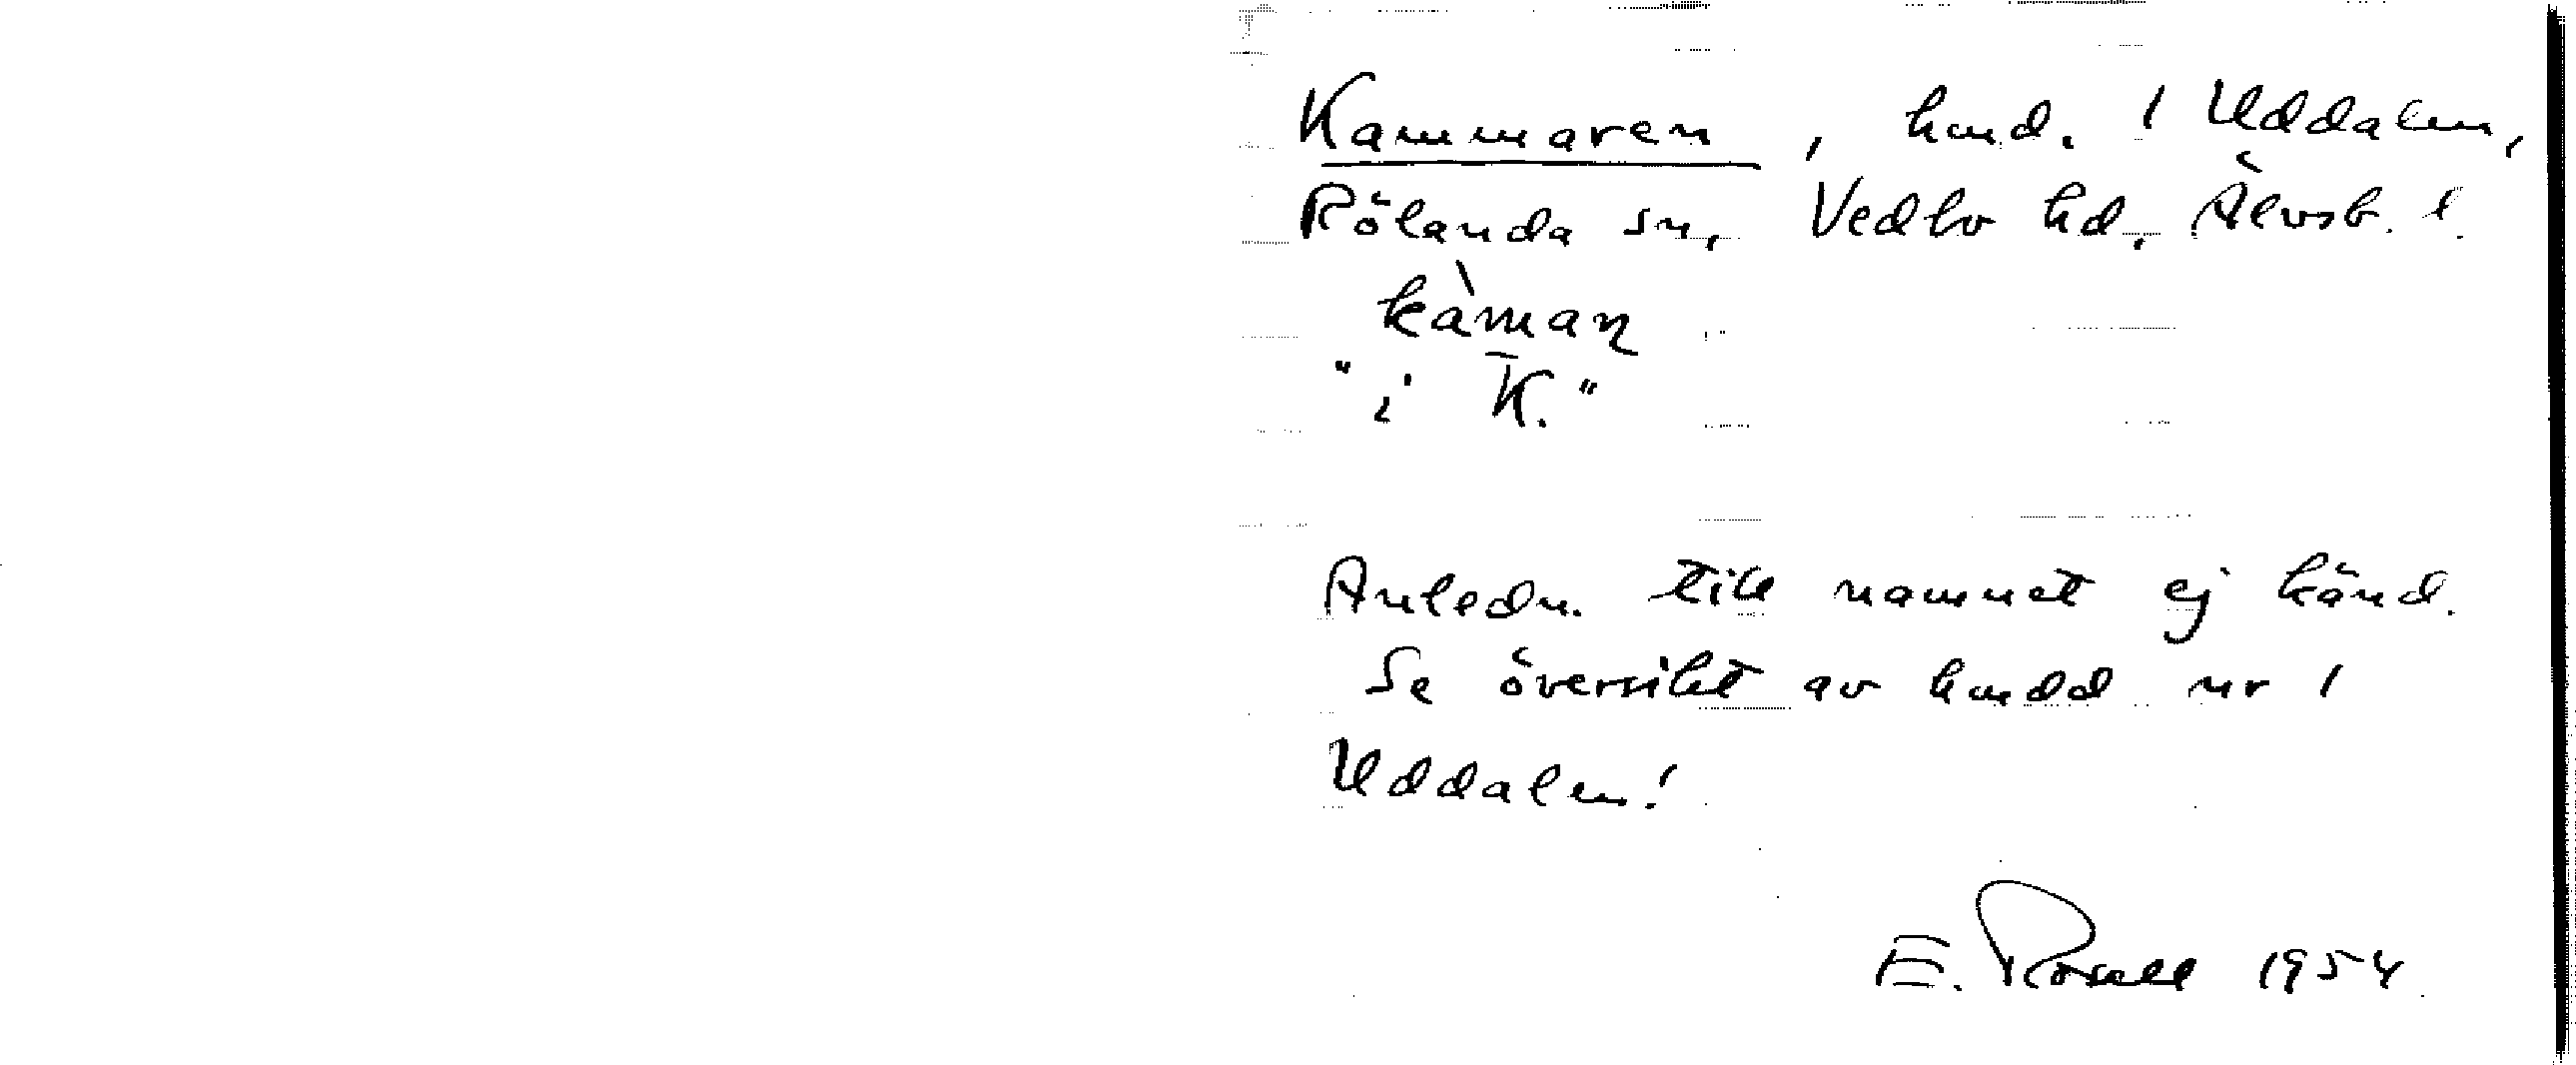 Kammaren, hmd. 1 Uddalen,
Rölanda sn, Vedbo hd. Älvsb. l.
kàmaɳ
"i K."
Anledn. till namnet ej känd.
Se översikt av hmdd nr 1
Uddalen!
E. Rosell 1954